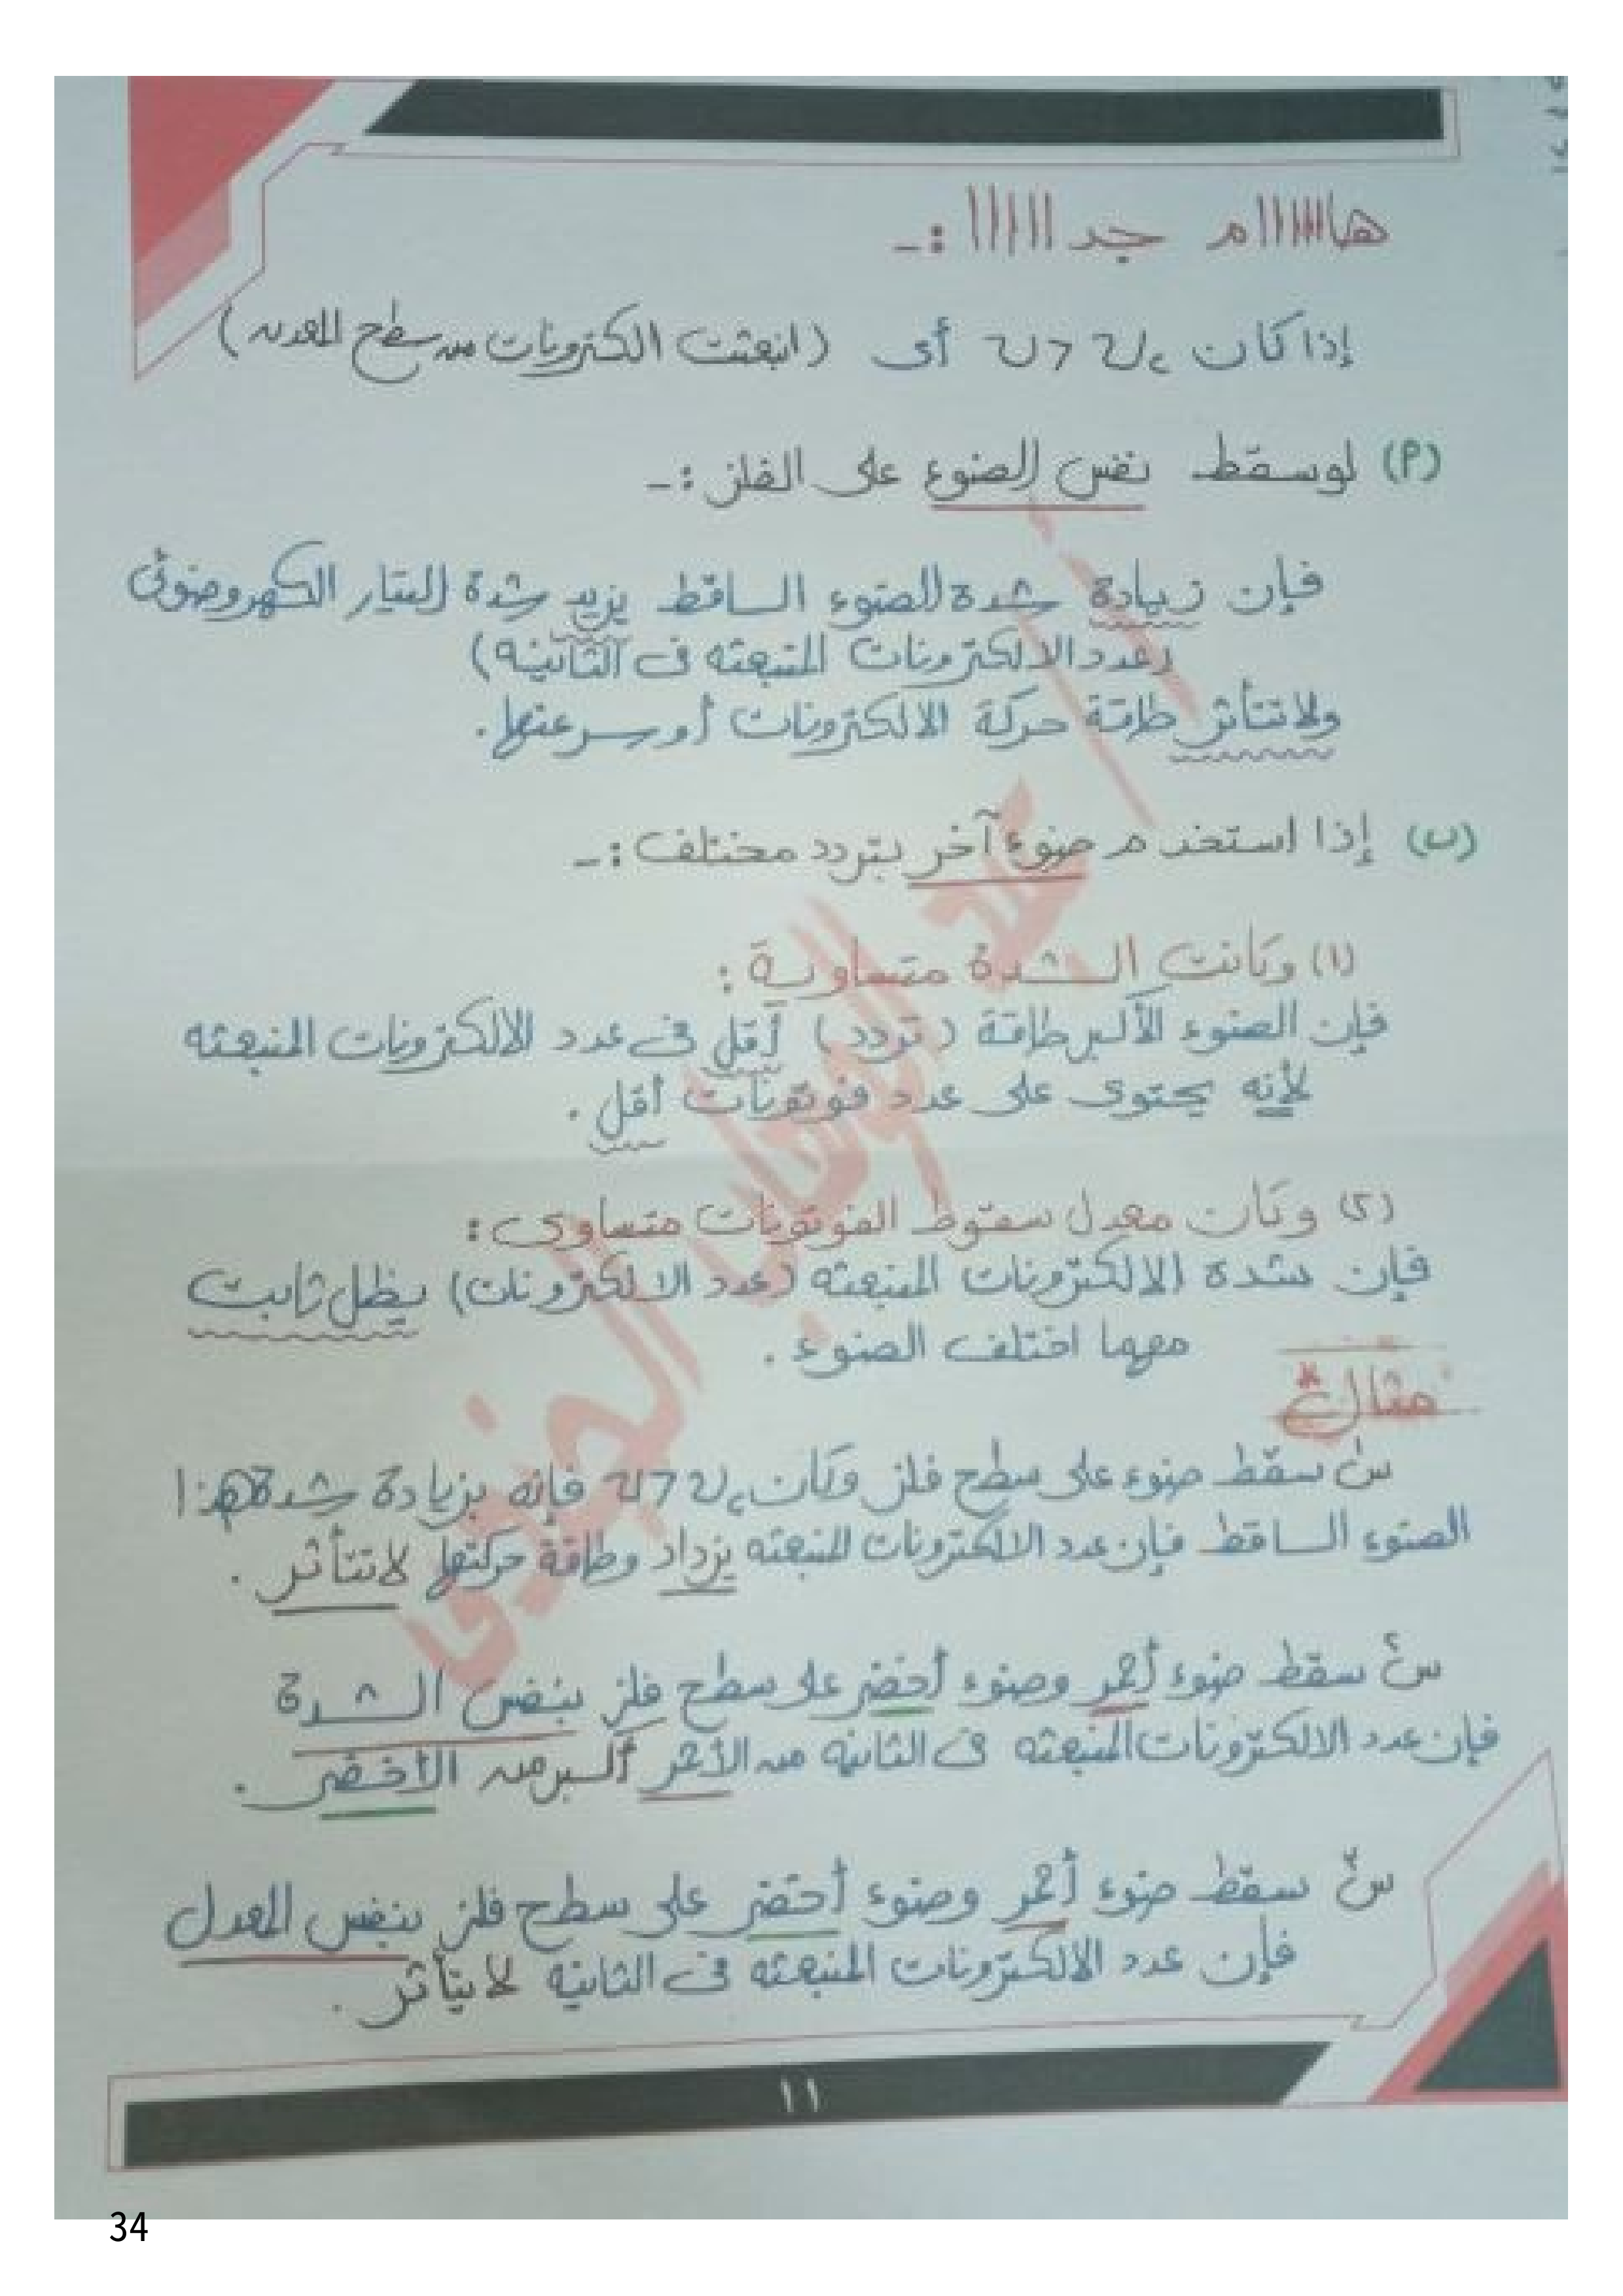 هااااااام جدااااا :ـ
إذا كان υ > υc أى (انبعثت الكترونات من سطح المعدن)
(أ) لو سقط نفس الضوء على الفلز :ـ
فإن زيادة شدة الضوء الساقط يزيد شدة التيار الكهروضوئى
(عدد الالكترونات المنبعثه فى الثانيه)
ولا تتأثر طاقة حركة الالكترونات أو سرعتها .
(ب) إذا استخدم ضوء آخر بتردد مختلف :ـ
(١) وكانت الشدة متساوية :
فإن الضوء الأكبر طاقة (تردد) أقل فى عدد الالكترونات المنبعثه
لأنه يحتوى على عدد فوتونات أقل .
(٢) وكان معدل سقوط الفوتونات متساوى :
فإن شدة الالكترونات المنبعثه (عدد الالكترونات) يظل ثابت
مهما اختلف الضوء .
مثال *
س١ سقط ضوء على سطح فلز وكان υ > υc فإنه بزيادة شدة هذا
الضوء الساقط فإن عدد الالكترونات المنبعثه يزداد وطاقة حركتها لا تتأثر .
س٢ سقط ضوء أحمر وضوء أخضر على سطح فلز بنفس الشدة
فإن عدد الالكترونات المنبعثه فى الثانيه من الأحمر أكبر من الأخضر .
س٣ سقط ضوء أحمر وضوء أخضر على سطح فلز بنفس المعدل
فإن عدد الالكترونات المنبعثه فى الثانيه لا يتأثر .
١١
34